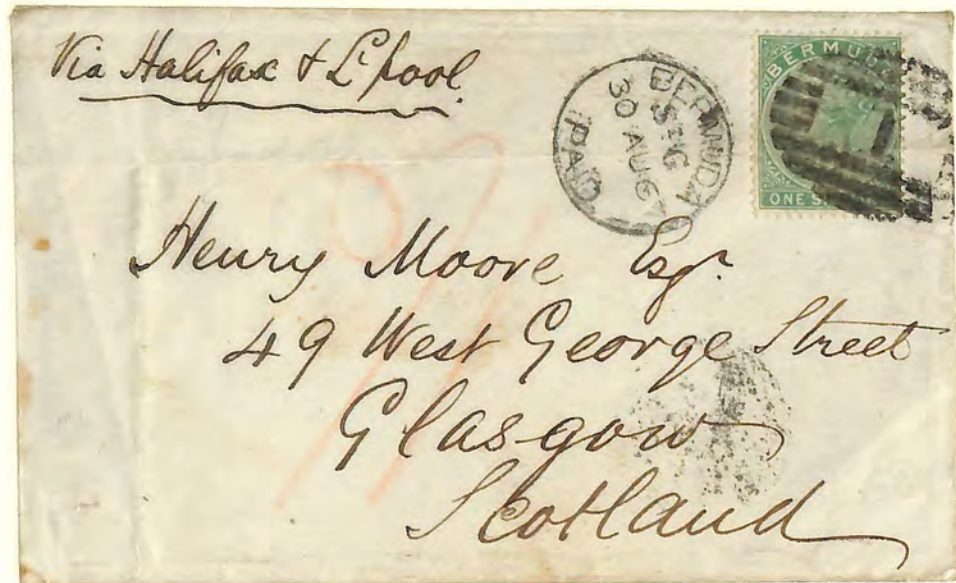 Via Halifax & L'pool.
BERMUDA
30 AUG
PAID
BERMUDA
ONE
Henry Moore Esqr.
49 West George Street
Glasgow
Scotland